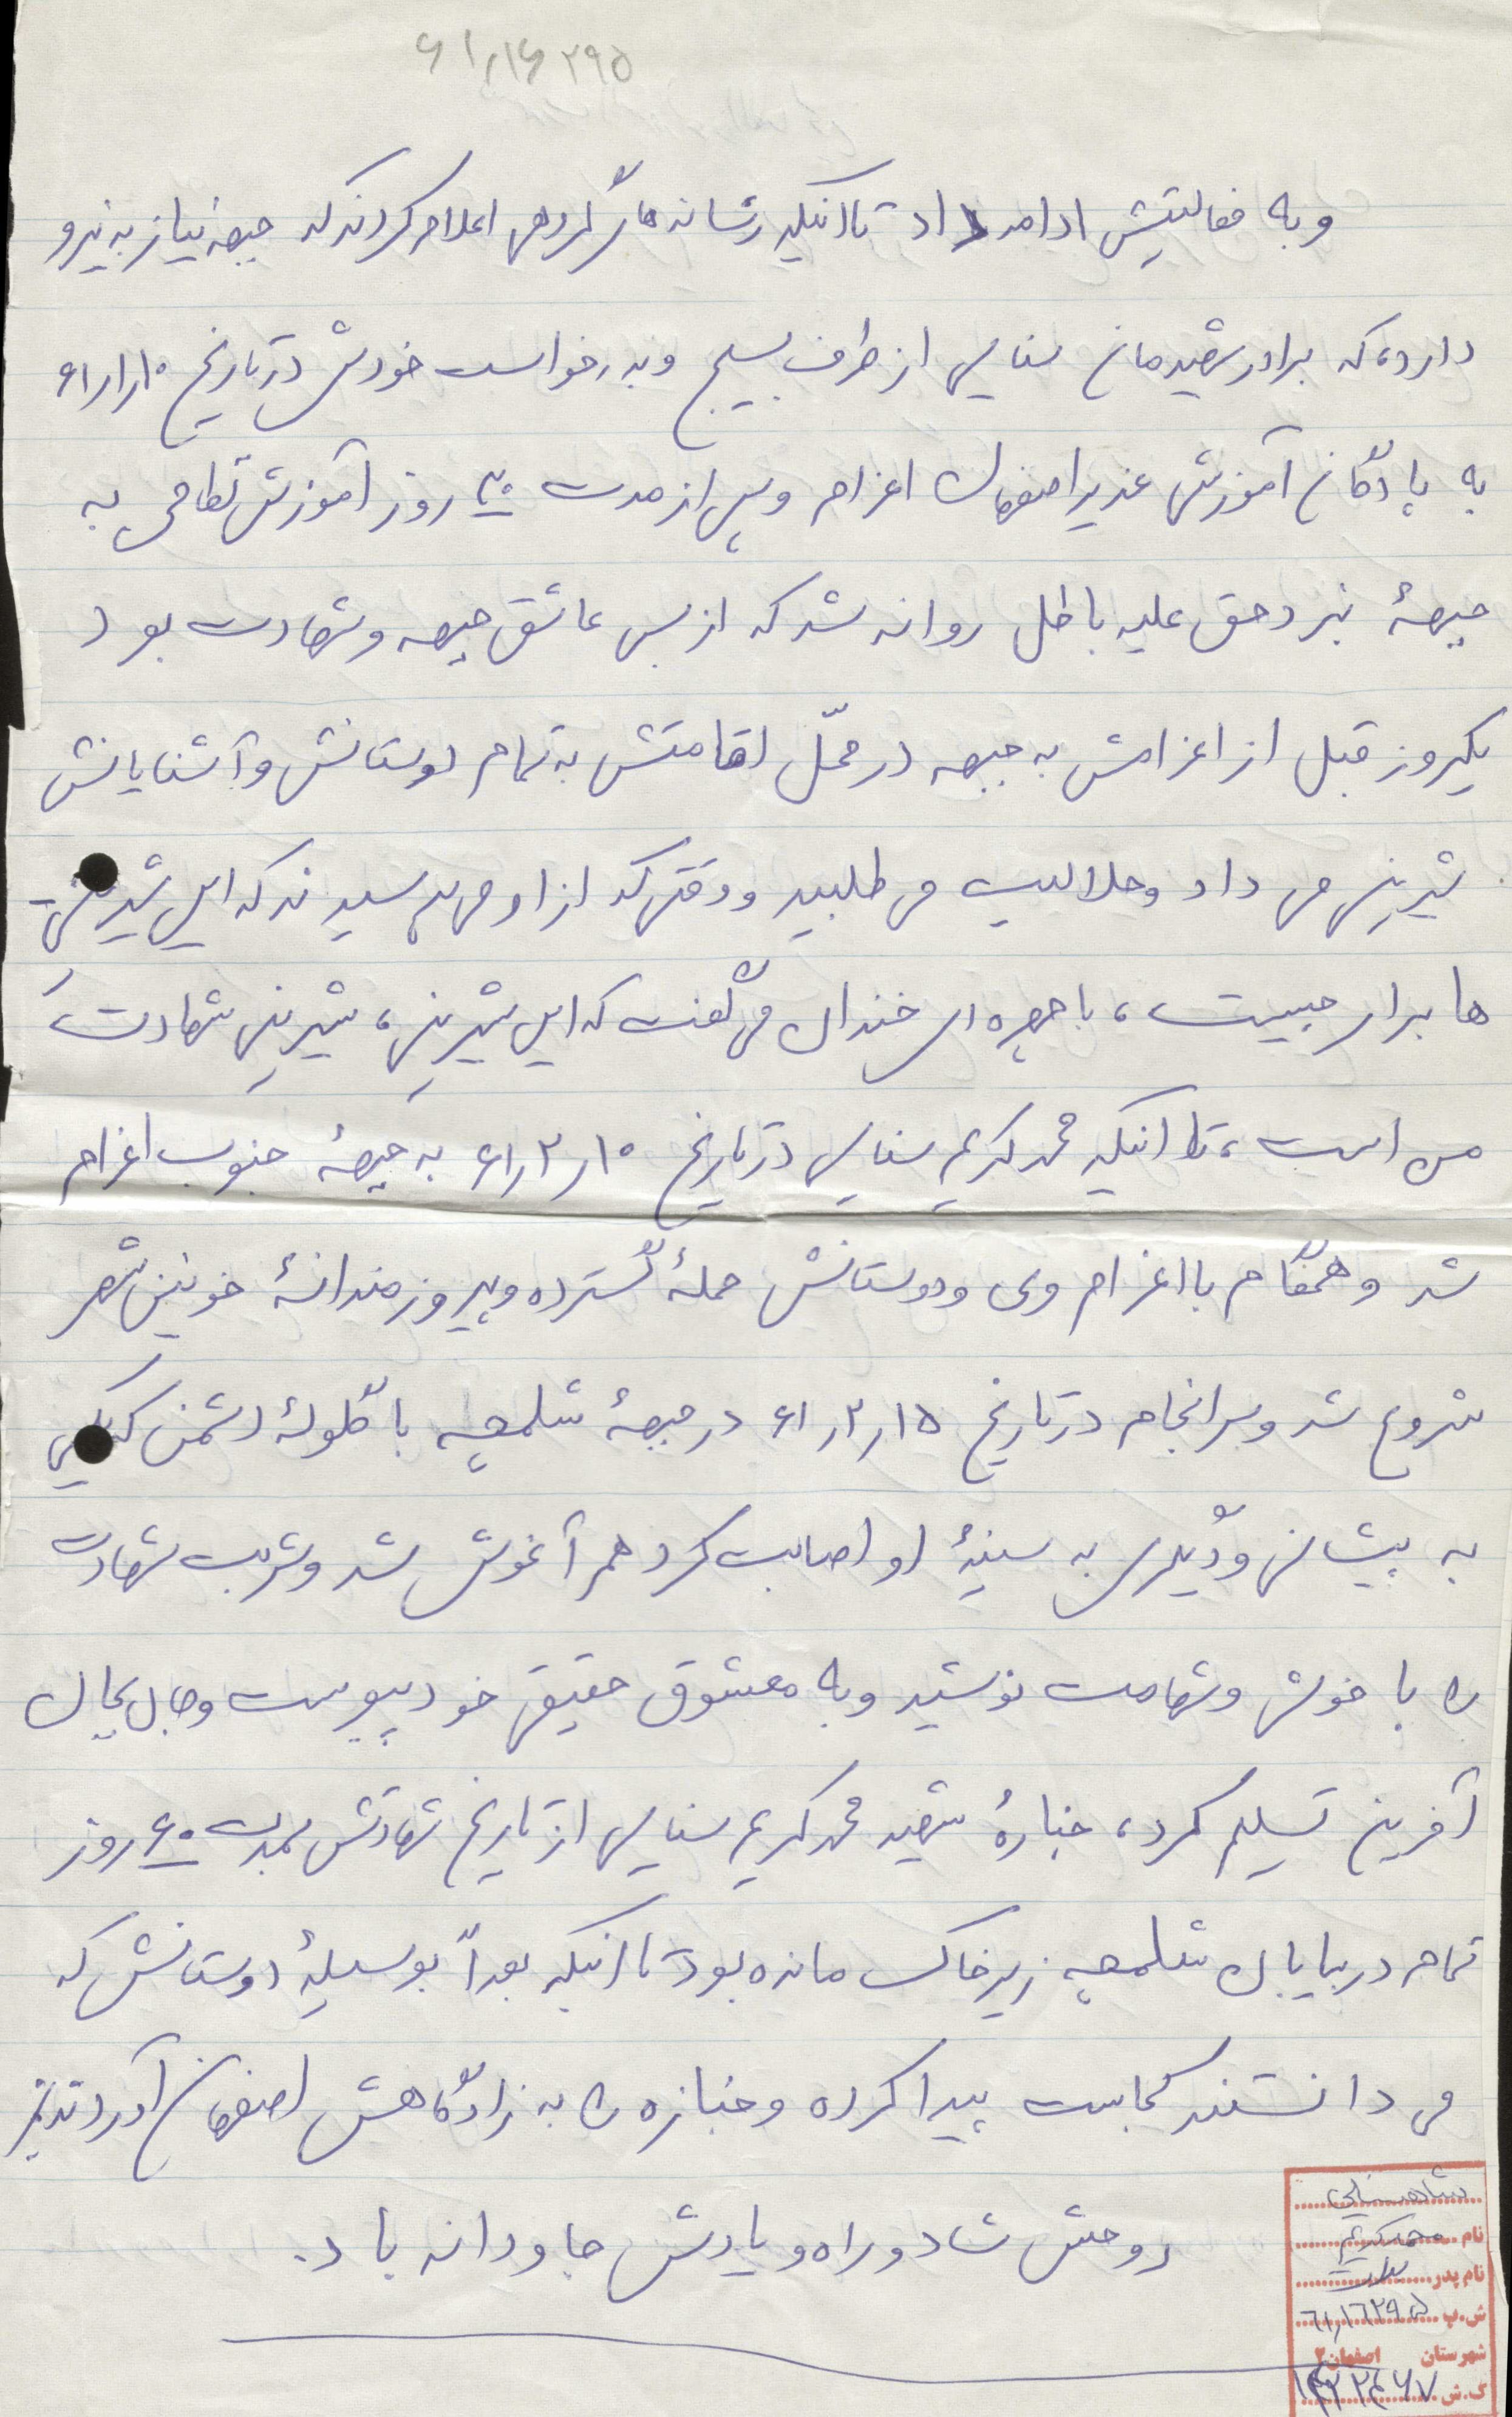 ۶۱٫۱۶۲۹۵
و به فعالیتش ادامه داد تا اینکه رسانه های گروهی اعلام کردند که جبهه نیاز به نیرو
دارد، که برادر شهیدمان سنایی از طرف بسیج و بدرخواست خودش در تاریخ ۶۱٫۱٫۱۰
به پادگان آموزشی غدیر اصفهان اعزام و پس از مدت ۳۰ روز آموزش نظامی به
جبههٔ نبرد حق علیه باطل روانه شد که از بس عاشق جبهه و شهادت بود
یکروز قبل از اعزامش به جبهه در محلّ اقامتش به تمام دوستانش و آشنایانش
شیرینی می داد و حلالیت می طلبید و وقتی که از او می پرسیدند که این شیرینی-
ها برای چیست، با چهره ای خندان می گفت که این شیرینی، شیرینی شهادت
من است، تا اینکه محمد کریم سنایی در تاریخ ۶۱٫۲٫۱۰ به جبههٔ جنوب اعزام
شد و همگام با اعزام وی و دوستانش حملهٔ گسترده و پیروزمندانهٔ خونین شهر
شروع شد و سرانجام در تاریخ ۶۱٫۲٫۱۵ در جبههٔ شلمچه با گلولهٔ دشمن که یکی
به پیشانی و دیگری به سینهٔ او اصابت کرد هم آغوش شد و شربت شهادت
را با خوشی و شهامت نوشید و به معشوق حقیقی خود پیوست و جان بجان
آفرین تسلیم کرد، جنازهٔ شهید محمد کریم سنایی از تاریخ شهادتش بمدت ۶۰ روز
تمام در بیابان شلمچه زیر خاک مانده بود تا اینکه بعداً بوسیلهٔ دوستانش که
می دانستند کجاست پیدا کرده و جنازه را به زادگاهش اصفهان آوردند
روحش شاد و راه و یادش جاودانه باد.
نام محمدکریم
نام پدر
ش.پ ۶۱٫۱۶۲۹۵
شهرستان اصفهان۲
ک.ش